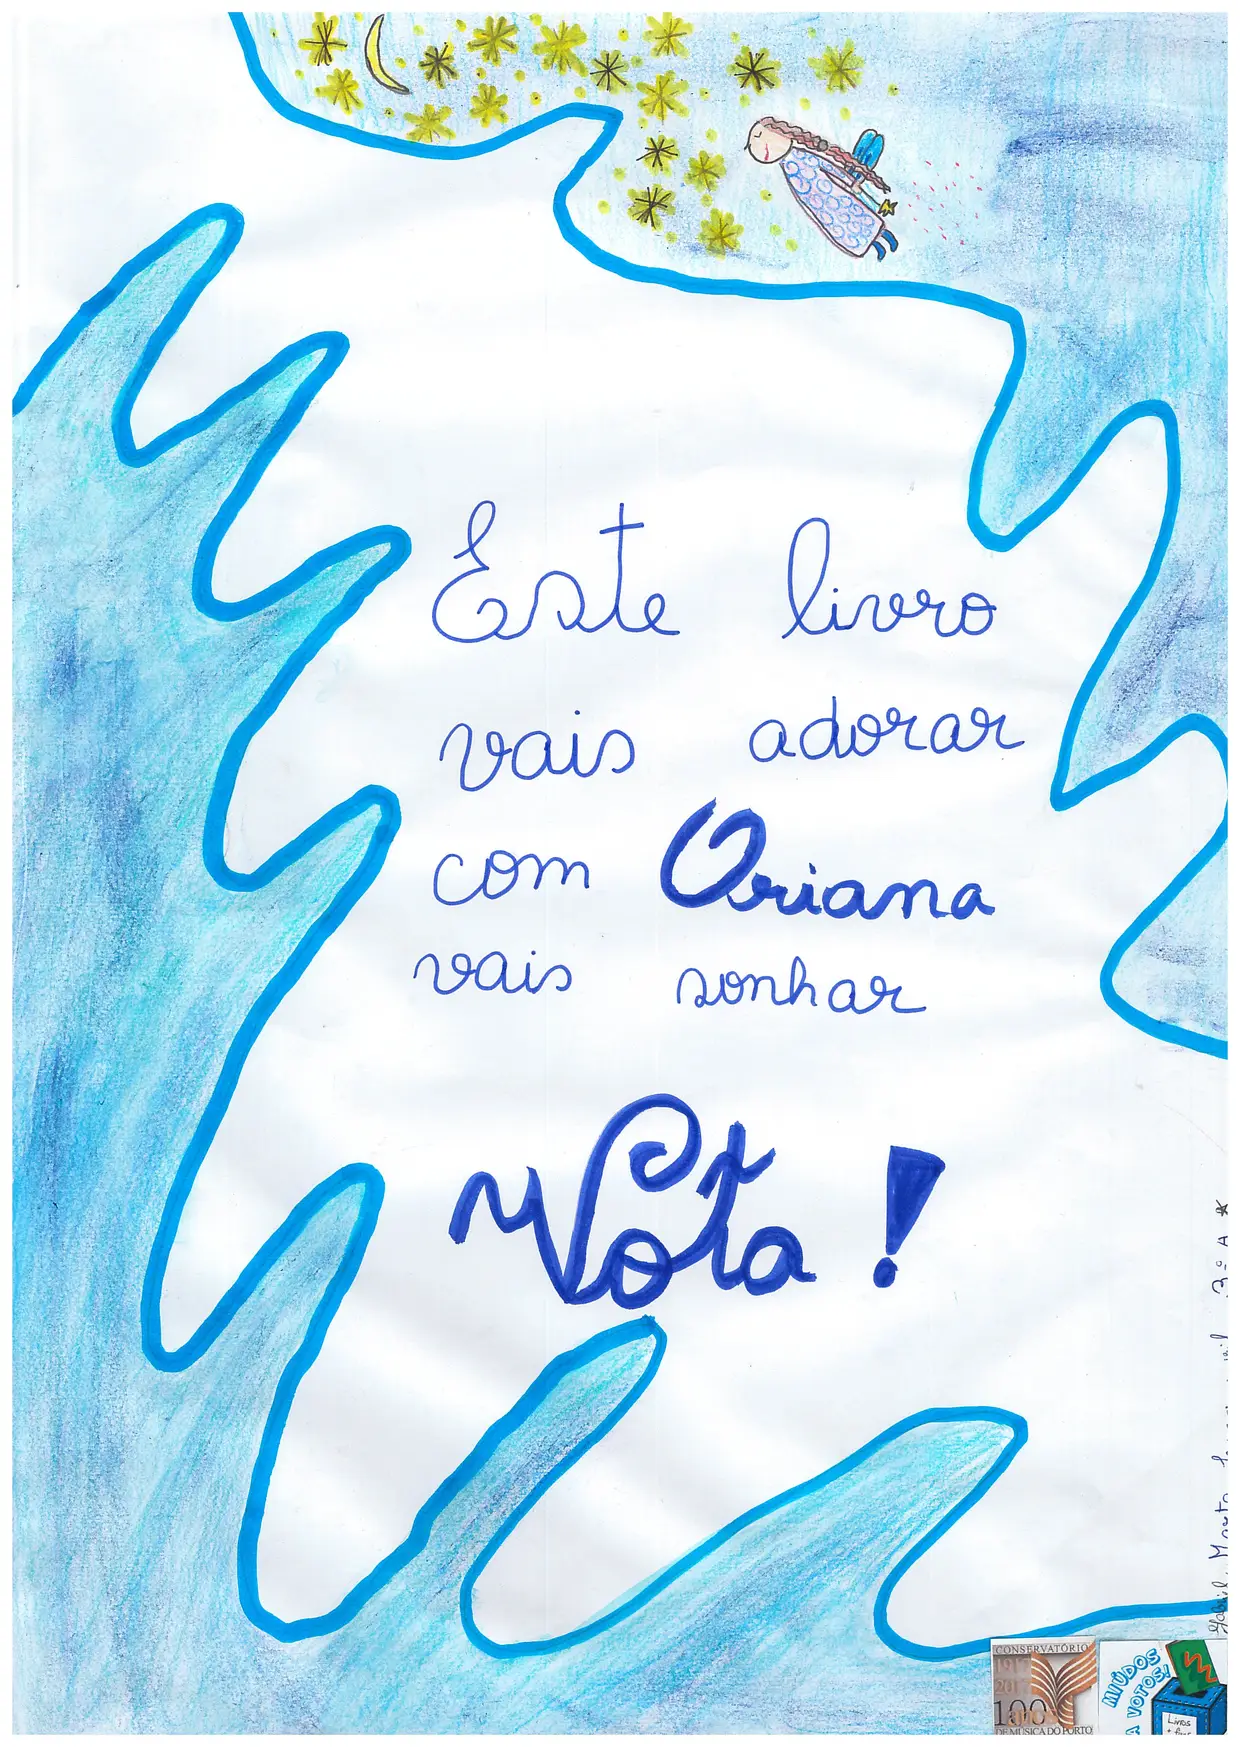 Este livro
vais adorar
com Oriana
vais sonhar
Vota!
3º A
CONSERVATÓRIO
1917
2017
100
DE MÚSICA DO PORTO
MIÚDOS
A VOTOS!
Livros